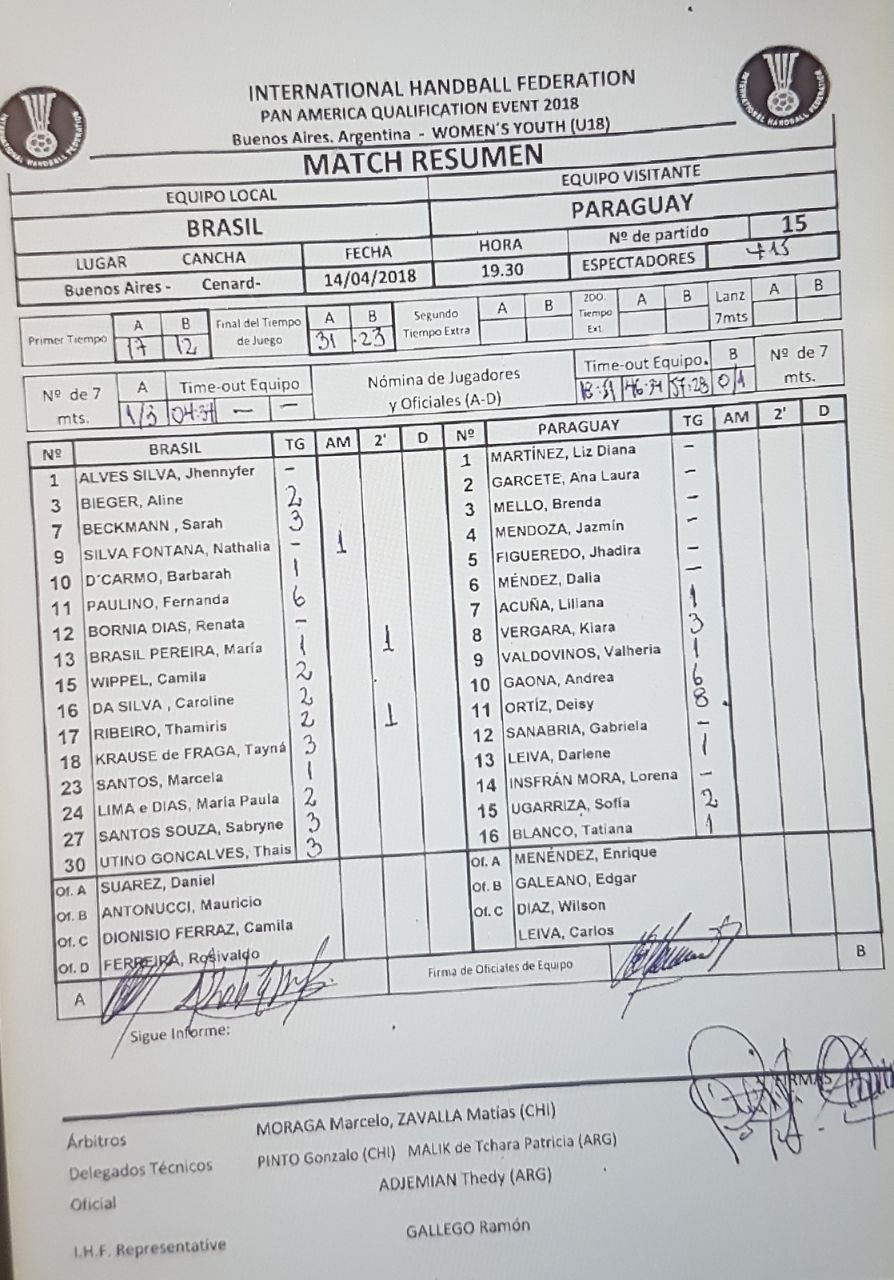 INTERNATIONAL HANDBALL FEDERATION
PAN AMERICA QUALIFICATION EVENT 2018
Buenos Aires. Argentina - WOMEN'S YOUTH (U18)
MATCH RESUMEN
EQUIPO LOCAL EQUIPO VISITANTE
BRASIL PARAGUAY
LUGAR CANCHA FECHA HORA Nº de partido 15
Buenos Aires - Cenard- 14/04/2018 19.30 ESPECTADORES
Primer Tiempo A B Final del Tiempo de Juego A B Segundo Tiempo Extra A B 2DO. Tiempo Ext. A B Lanz 7mts A B
17 12 31 23
Nº de 7 mts. A Time-out Equipo Nómina de Jugadores y Oficiales (A-D) Time-out Equipo. B Nº de 7 mts.
1/3 04:34 — — 18:51 46:34 57:28 0/1
Nº BRASIL TG AM 2' D Nº PARAGUAY TG AM 2' D
1 ALVES SILVA, Jhennyfer - 1 MARTÍNEZ, Liz Diana -
3 BIEGER, Aline 2 2 GARCETE, Ana Laura -
7 BECKMANN , Sarah 3 3 MELLO, Brenda -
9 SILVA FONTANA, Nathalia - 1 4 MENDOZA, Jazmín -
10 D´CARMO, Barbarah 1 5 FIGUEREDO, Jhadira -
11 PAULINO, Fernanda 6 6 MÉNDEZ, Dalia -
12 BORNIA DIAS, Renata - 7 ACUÑA, Liliana 1
13 BRASIL PEREIRA, María 1 1 8 VERGARA, Kiara 3
15 WIPPEL, Camila 2 9 VALDOVINOS, Valheria 1
16 DA SILVA , Caroline 2 10 GAONA, Andrea 6
17 RIBEIRO, Thamiris 2 1 11 ORTÍZ, Deisy 8
18 KRAUSE de FRAGA, Tayná 3 12 SANABRIA, Gabriela -
23 SANTOS, Marcela 1 13 LEIVA, Darlene 1
24 LIMA e DIAS, María Paula 2 14 INSFRÁN MORA, Lorena -
27 SANTOS SOUZA, Sabryne 3 15 UGARRIZA, Sofía 2
30 UTINO GONCALVES, Thais 3 16 BLANCO, Tatiana 1
Of. A SUAREZ, Daniel Of. A MENÉNDEZ, Enrique
Of. B ANTONUCCI, Mauricio Of. B GALEANO, Edgar
Of. C DIONISIO FERRAZ, Camila Of. C DIAZ, Wilson
Of. D FERREIRA, Rosivaldo LEIVA, Carlos
A Firma de Oficiales de Equipo B
Sigue Informe:
Árbitros MORAGA Marcelo, ZAVALLA Matías (CHI)
Delegados Técnicos PINTO Gonzalo (CHI) MALIK de Tchara Patricia (ARG)
Oficial ADJEMIAN Thedy (ARG)
I.H.F. Representative GALLEGO Ramón